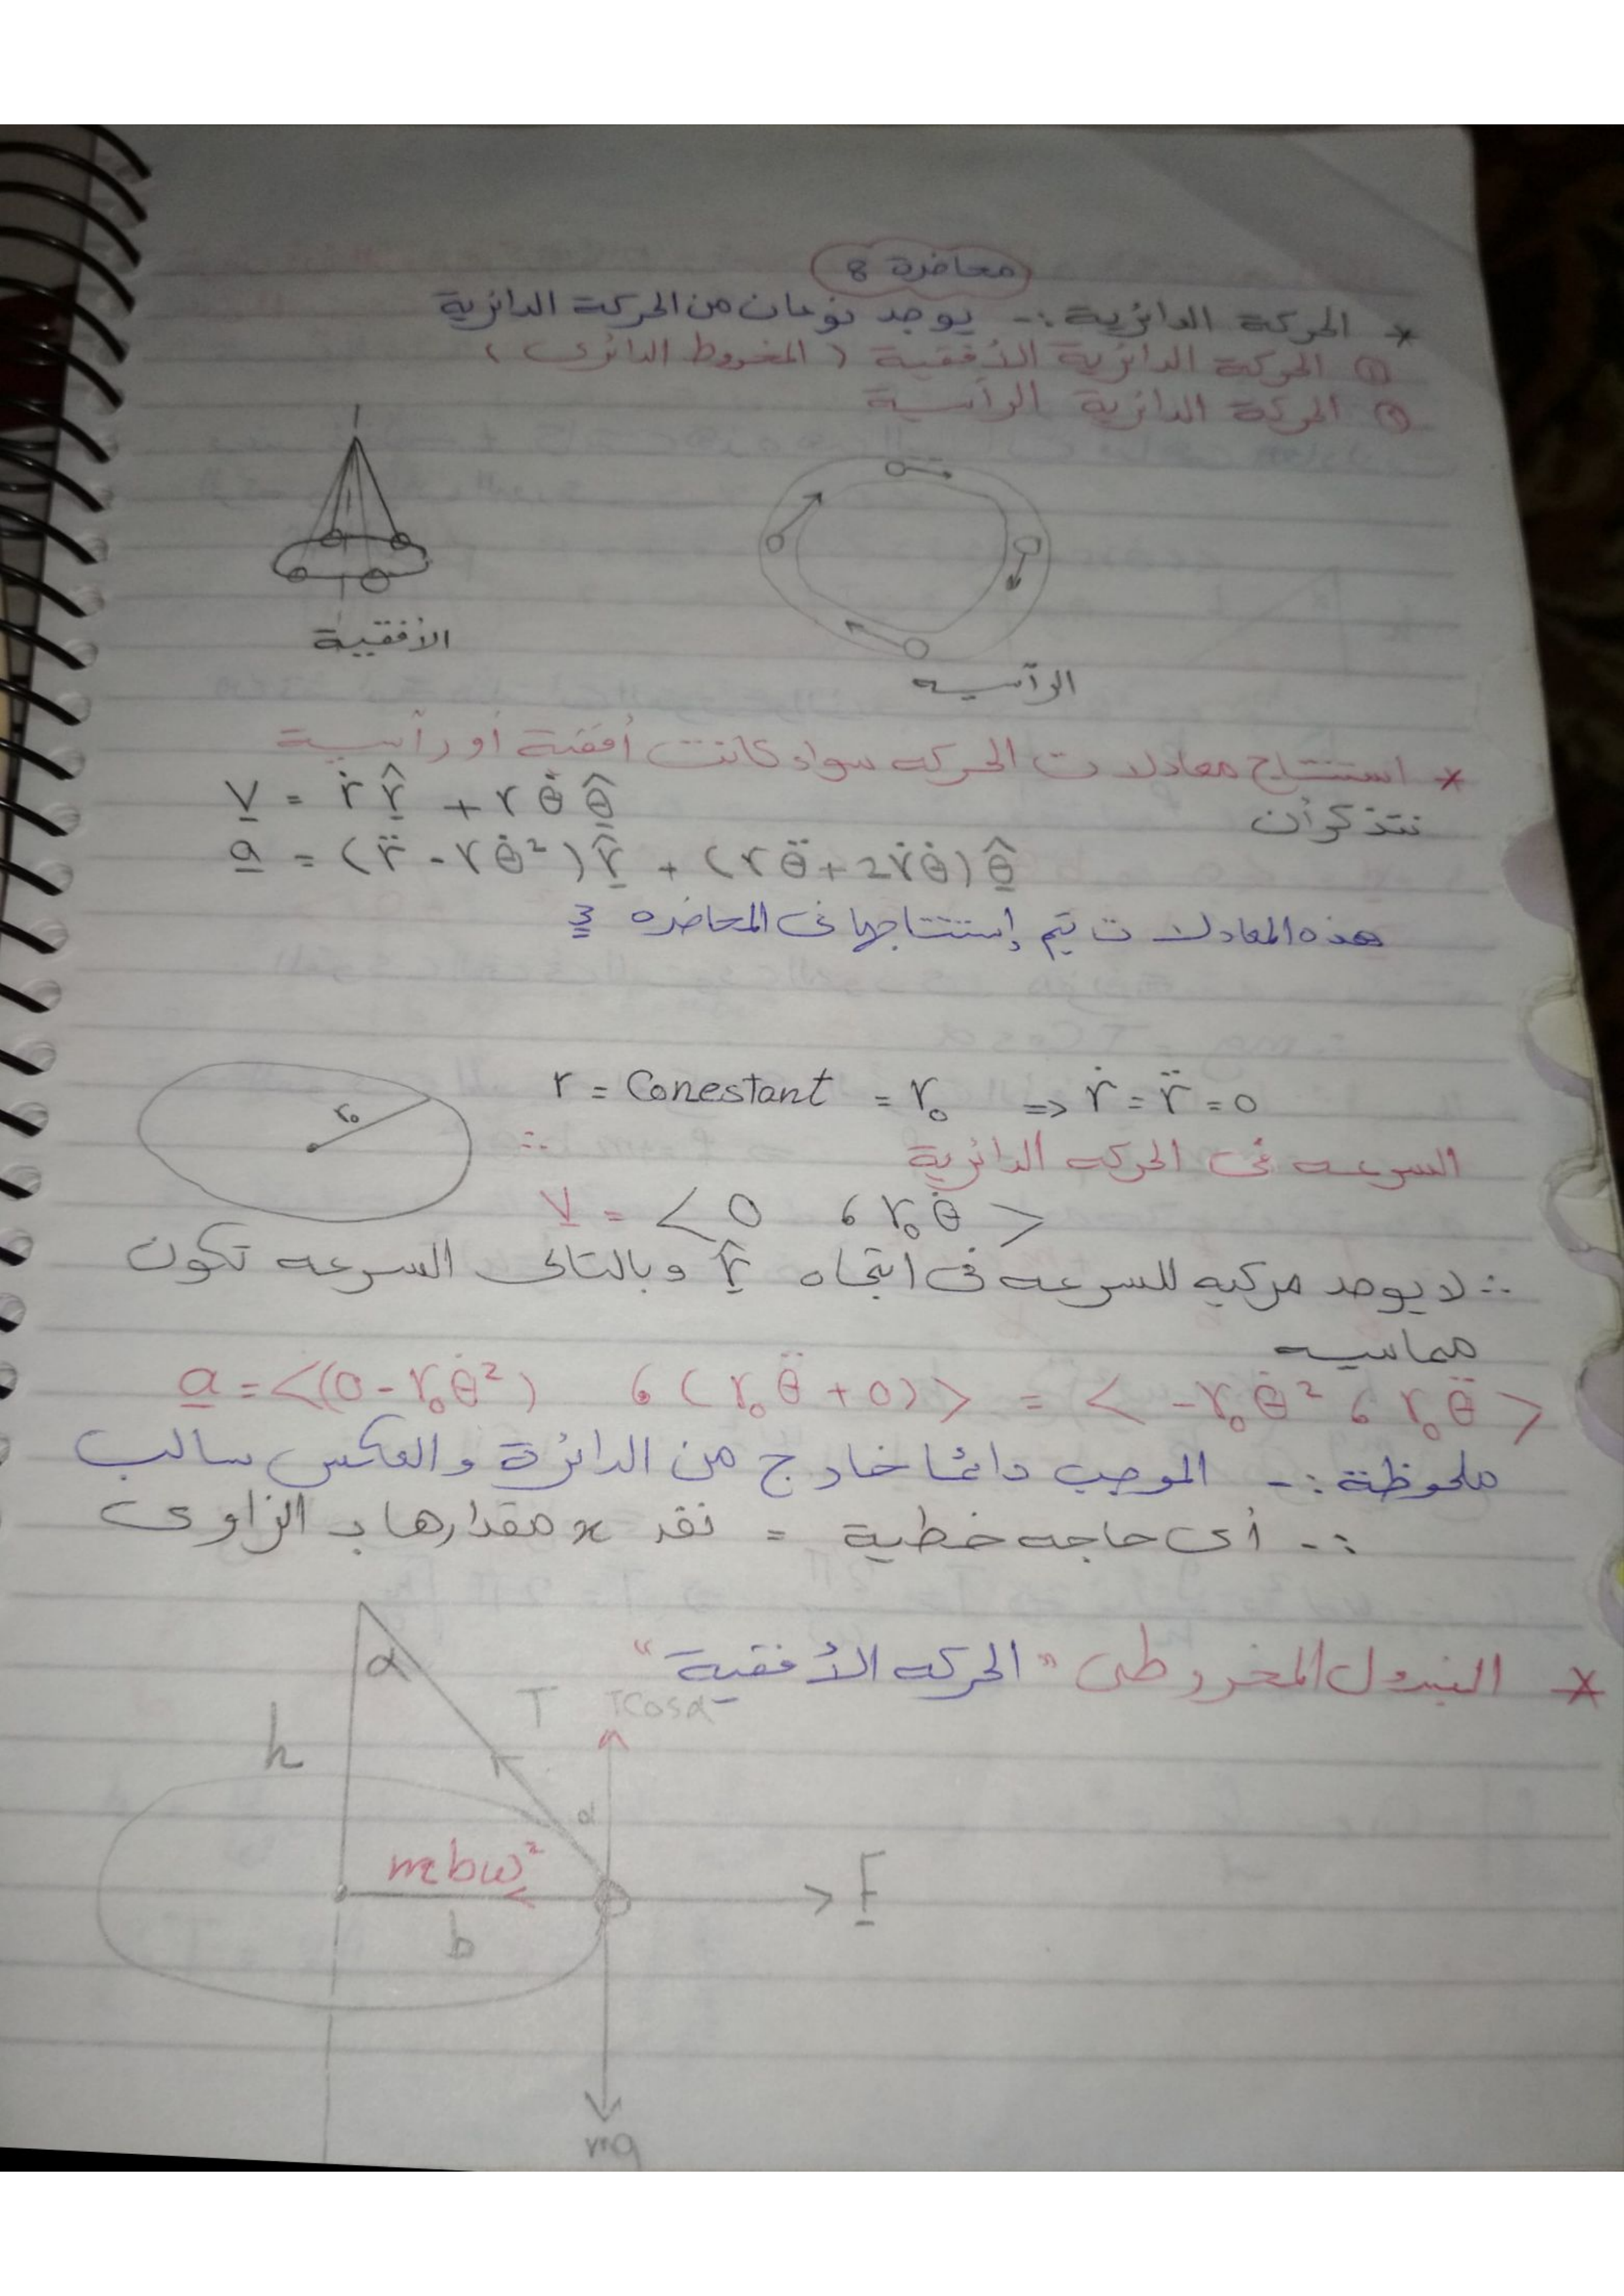 محاضرة 8
* الحركة الدائرية :- يوجد نوعان من الحركة الدائرية
① الحركة الدائرية الأفقية ( المخروط الدائرى )
② الحركة الدائرية الرأسية
الأفقية
الرأسيه
* استنتاج معادلات الحركه سواء كانت أفقية أو رأسية
نتذكر أن
v = ṙ r̂ + r θ̇ θ̂
a = (r̈ - r θ̇²) r̂ + (r θ̈ + 2 ṙ θ̇) θ̂
هذه المعادلات تم إستنتاجها فى المحاضره 3
r₀
r = Conestant = r₀ => ṙ = r̈ = 0
السرعه فى الحركه الدائرية
∴ v = < 0 ، r₀ θ̇ >
∴ لا يوجد مركبه للسرعه فى اتجاه r̂ وبالتالى السرعه تكون
مماسيه
a = <(0 - r₀ θ̇²) ، (r₀ θ̈ + 0)> = < - r₀ θ̇² ، r₀ θ̈ >
ملحوظة :- الموجب دائمًا خارج من الدائرة والعكس سالب
:- أى حاجه خطية = نقد x مقدارها بـ الزاوى
* البندول المخروطى "الحركه الأفقية"
α
T
Tcosα
h
α
mbω²
F
b
mg